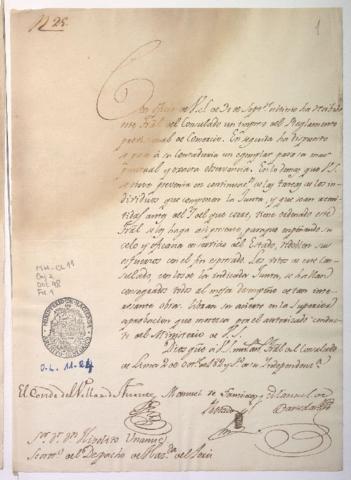 N 25.
1
Con oficio de V.S. de 30 de Sept.e ultimo ha recibido
este Tral. del Consulado un impreso del Reglamento
provisional de Comercio. En seguida ha dispuesto
se pase a su Contaduria un exemplar para su mas
puntual y exacta observancia. En lo demas que V.S.
prevenir en continuen las tareas los in-
dividuos que componen la Junta, y que sean
antes del 7 del que cesa, tiene ordenado este
Tral. se les haga asi presente para que
celo y eficacia en servicio del Estado, redoblen sus
esfuerzos con el fin expresado. Los votos de este Con-
sulado, con los de la indicada Junta, se hallan
consagrados todos al mejor desempeño de tan inte-
resante obra. Libran su acierto en la Superior
aprobacion que merezca por el autorizado conduc-
to del Ministerio de V.S.
Dios gue. a V.S. m.s an.s Tral. del Consulado
de Lima 2 de Oct.re de 1821 1.o de su Independenc.a
El Conde de Villar de Fuente
Manuel de Santiago y
Rotalde
Manuel de
Barreda
S.or D.r D.n Hipolito Unanue
Secret.o del Despacho de Haz.da del Perú
MH-OL 11
Caj. 2
Doc. 48
Fol. 1
O.L. 11-24